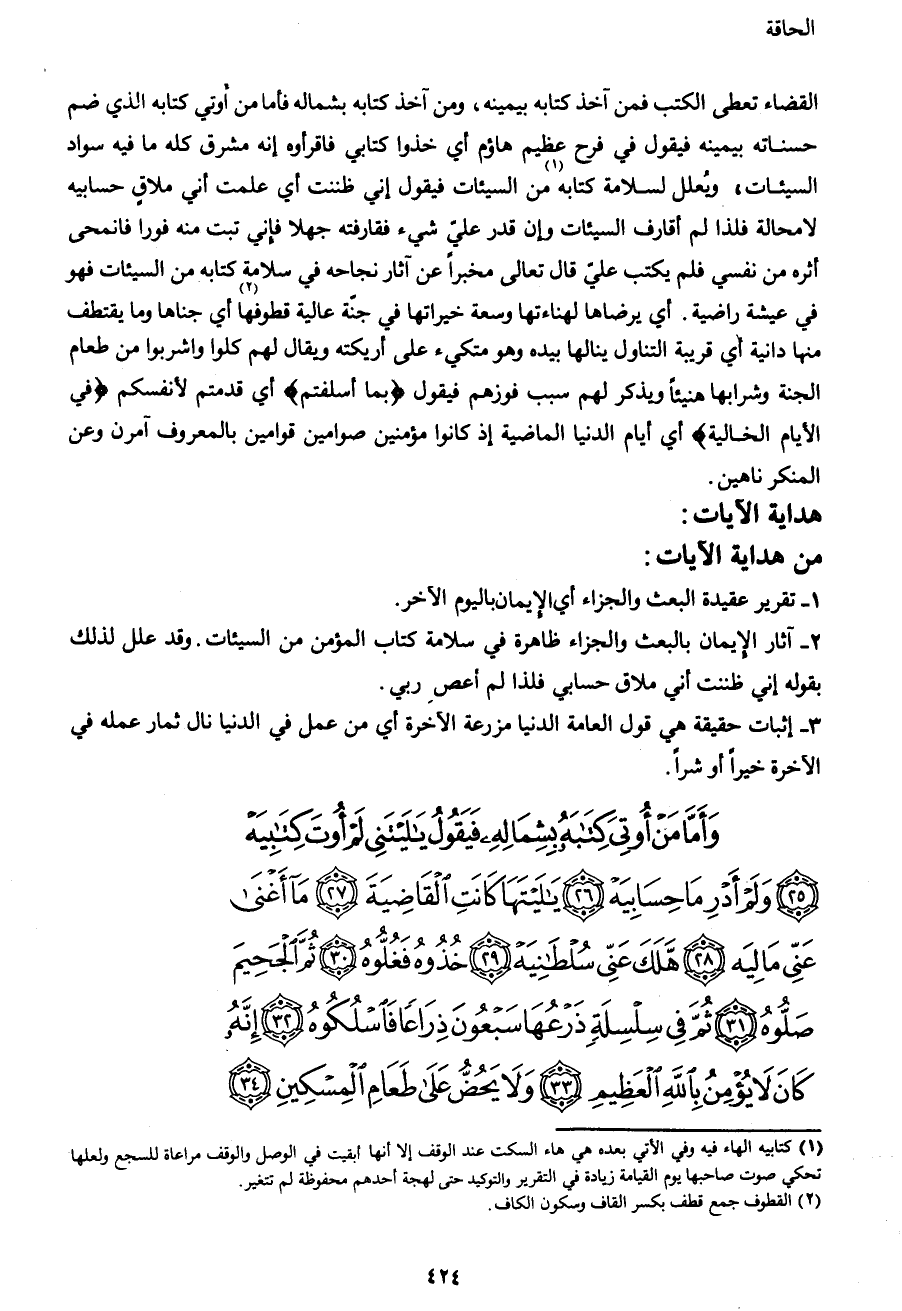 الحاقة
القضاء تعطى الكتب فمن آخذ كتابه بيمينه، ومن آخذ كتابه بشماله فأما من أُوتي كتابه الذي ضم
حسناته بيمينه فيقول في فرح عظيم هاؤم أي خذوا كتابي فاقرأوه إنه مشرق كله ما فيه سواد
السيئات، ويُعلل لسلامة كتابه(١) من السيئات فيقول إني ظننت أي علمت أني ملاقٍ حسابيه
لامحالة فلذا لم أقارف السيئات وإن قدر عليّ شيء فقارفته جهلا فإني تبت منه فورا فانمحى
أثره من نفسي فلم يكتب عليّ قال تعالى مخبراً عن آثار نجاحه في سلامة كتابه من السيئات فهو
في عيشة راضية. أي يرضاها لهناءتها وسعة خيراتها في جنّة عالية قطوفها(٢) أي جناها وما يقتطف
منها دانية أي قريبة التناول ينالها بيده وهو متكيء على أريكته ويقال لهم كلوا واشربوا من طعام
الجنة وشرابها هنيئاً ويذكر لهم سبب فوزهم فيقول ﴿بما أسلفتم﴾ أي قدمتم لأنفسكم ﴿في
الأيام الخالية﴾ أي أيام الدنيا الماضية إذ كانوا مؤمنين صوامين قوامين بالمعروف آمرن وعن
المنكر ناهين.
هداية الآيات:
من هداية الآيات:
١ـ تقرير عقيدة البعث والجزاء أي الإيمان باليوم الآخر.
٢ـ آثار الإيمان بالبعث والجزاء ظاهرة في سلامة كتاب المؤمن من السيئات. وقد علل لذلك
بقوله إني ظننت أني ملاق حسابي فلذا لم أعص ربي.
٣ـ إثبات حقيقة هي قول العامة الدنيا مزرعة الآخرة أي من عمل في الدنيا نال ثمار عمله في
الآخرة خيراً أو شراً.
وَأَمَّا مَنْ أُوتِيَ كِتَٰبَهُۥ بِشِمَالِهِۦ فَيَقُولُ يَٰلَيْتَنِى لَمْ أُوتَ كِتَٰبِيَهْ
﴿٢٥﴾ وَلَمْ أَدْرِ مَا حِسَابِيَهْ ﴿٢٦﴾ يَٰلَيْتَهَا كَانَتِ ٱلْقَاضِيَةَ ﴿٢٧﴾ مَآ أَغْنَىٰ
عَنِّى مَالِيَهْ ﴿٢٨﴾ هَلَكَ عَنِّى سُلْطَٰنِيَهْ ﴿٢٩﴾ خُذُوهُ فَغُلُّوهُ ﴿٣٠﴾ ثُمَّ ٱلْجَحِيمَ
صَلُّوهُ ﴿٣١﴾ ثُمَّ فِى سِلْسِلَةٍ ذَرْعُهَا سَبْعُونَ ذِرَاعًا فَٱسْلُكُوهُ ﴿٣٢﴾ إِنَّهُۥ
كَانَ لَا يُؤْمِنُ بِٱللَّهِ ٱلْعَظِيمِ ﴿٣٣﴾ وَلَا يَحُضُّ عَلَىٰ طَعَامِ ٱلْمِسْكِينِ ﴿٣٤﴾
(١) كتابيه الهاء فيه وفي الأتي بعده هي هاء السكت عند الوقف إلا أنها أبقيت في الوصل والوقف مراعاة للسجع ولعلها
تحكي صوت صاحبها يوم القيامة زيادة في التقرير والتوكيد حتى لهجة أحدهم محفوظة لم تتغير.
(٢) القطوف جمع قطف بكسر القاف وسكون الكاف.
٤٢٤